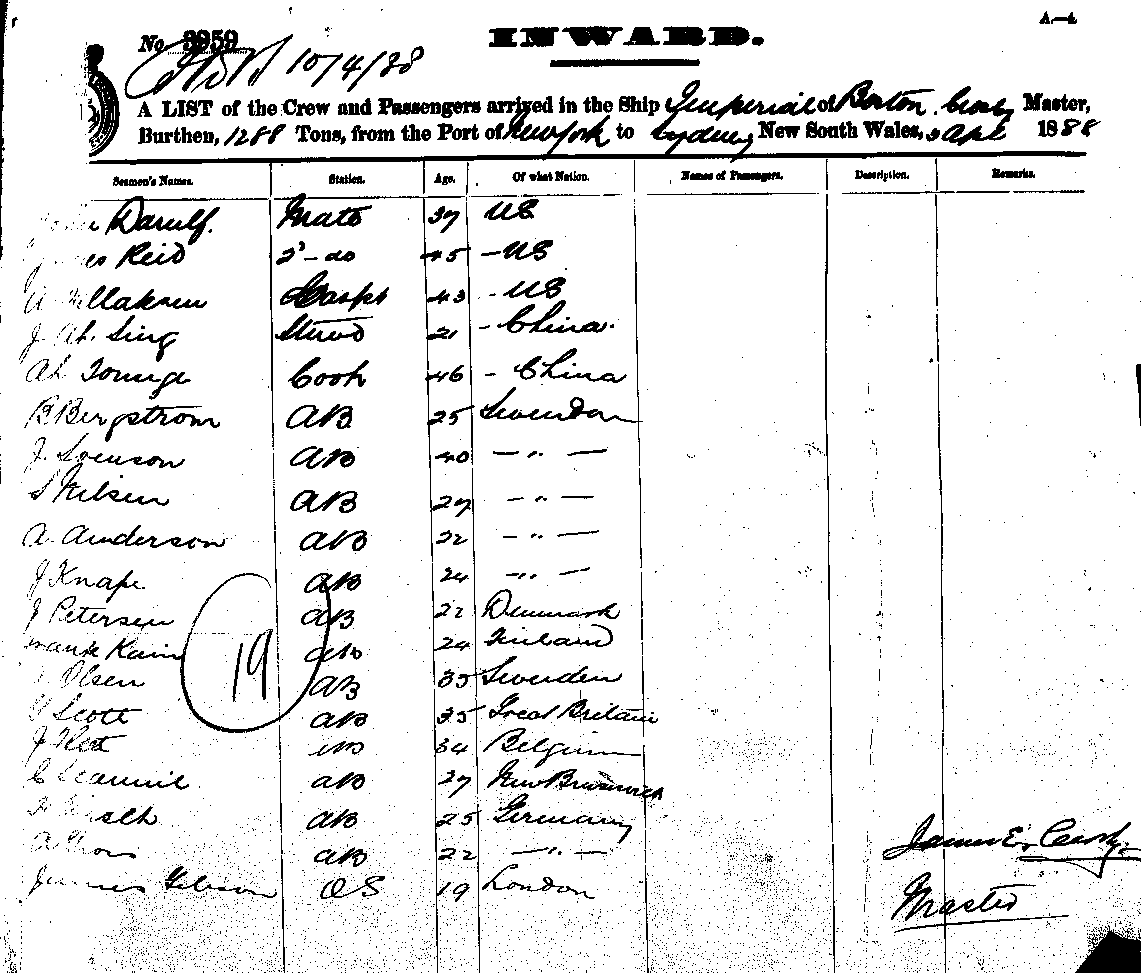 A.—4
No 3959
INWARD.
10/4/88
A LIST of the Crew and Passengers arrived in the Ship Imperial of Boston. Crosby Master,
Burthen, 1288 Tons, from the Port of New York to Sydney New South Wales, 3 Apl 1888
Seamen's Names. Station. Age. Of what Nation. Names of Passengers. Description. Remarks.
Mate 37 US
James Reid 2d - do 45 - US
43 - US
J. Ah. Sing Stewd 21 - China.
Ah Cook 46 - China
B Bergstrom AB 25 Sweeden
J. Svenson AB 40 — " —
S Nilsen AB 27 — " —
A. Anderson AB 22 — " —
J Knape AB 24 — " —
J Petersen AB 22 Denmark
Frank Kain AB 24 Finland
Olsen AB 35 Sweeden
Scott AB 35 Great Britain
J AB 34 Belgium
C AB 27 New Brunswick
AB 25 Germany
A AB 22 — " —
James Gibson OS 19 London
19
James E. Crosby
Master